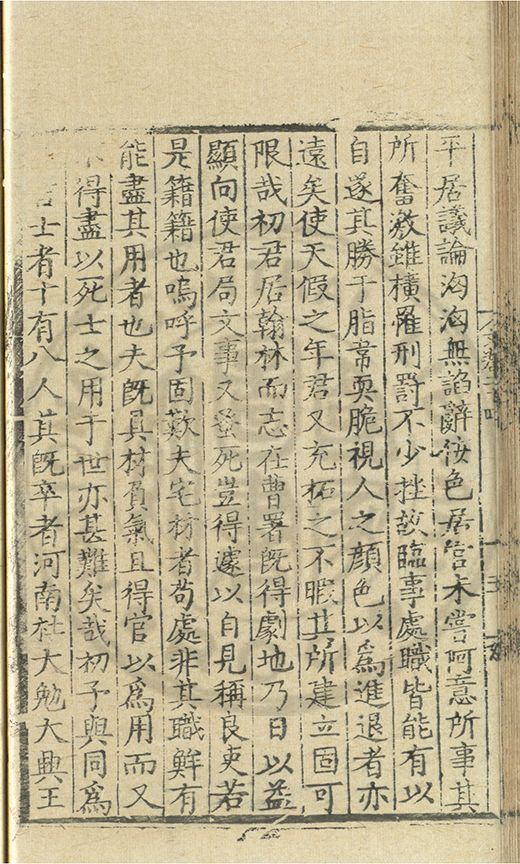 平居議論洶洶無諂辭佞色居官未嘗呵意所事其
所奮激雖橫罹刑罰不少挫故臨事處職皆能有以
自遂其勝于脂韋耎脆視人之顔色以爲進退者亦
遠矣使天假之年君又充拓之不暇其所建立固可
限哉初君居翰林而志在曹署旣得劇地乃日以益
顯向使君局文事又蚤死豈得遽以自見稱良吏若
是籍籍也嗚呼予固歎夫宅材者苟處非其職鮮有
能盡其用者也夫旣具材負氣且得官以爲用而又
不得盡以死士之用于世亦甚難矣哉初予與同爲
吉士者十有八人其旣卒者河南杜大勉大興王